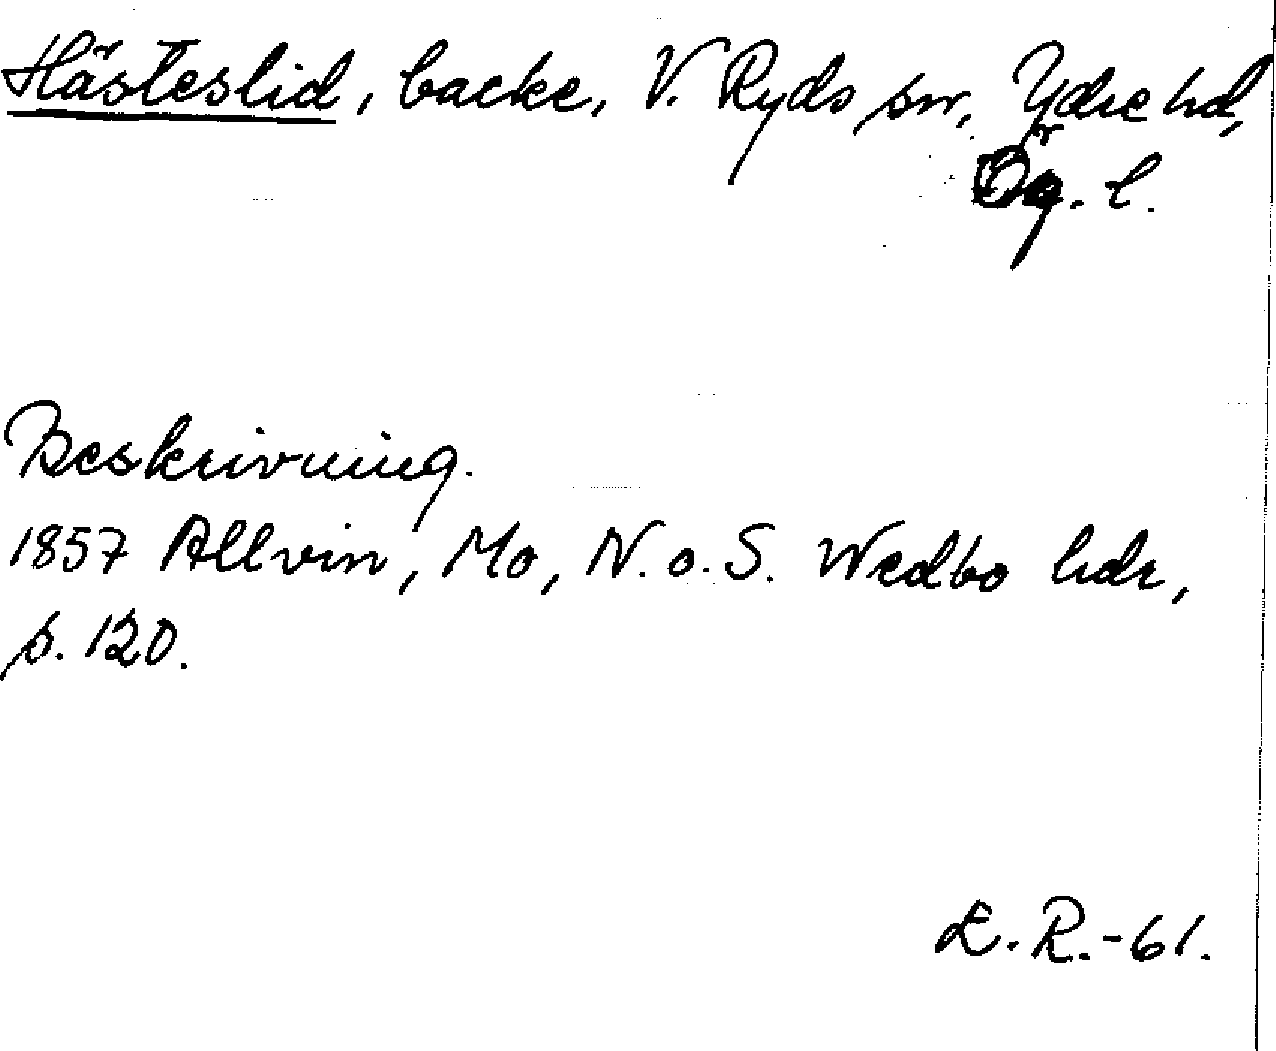 Hästeslid, backe, V. Ryds sn, Ydre hd,
Ög. l.
Beskrivning.
1857 Allvin, Mo, N. o. S. Wedbo hdr,
s. 120.
L. R.-61.